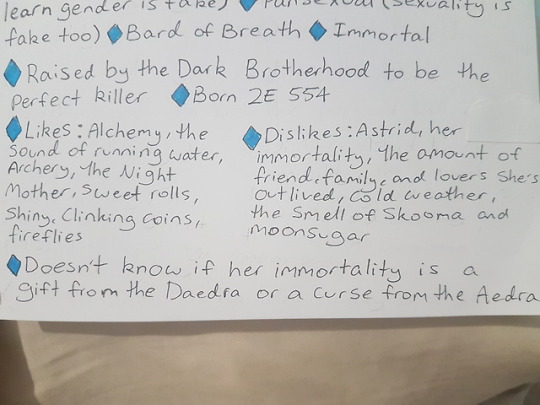 learn gender is fake) Pansexual (sexuality is
fake too) Bard of Breath Immortal
Raised by the Dark Brotherhood to be the
perfect killer Born 2E 554
Likes: Alchemy, the
sound of running water,
Archery, the Night
Mother, sweet rolls,
Shiny, Clinking coins,
fireflies
Dislikes: Astrid, her
immortality, the amount of
friend, family, and lovers she's
outlived, cold weather,
the smell of Skooma and
moonsugar
Doesn't know if her immortality is a
gift from the Daedra or a curse from the Aedra